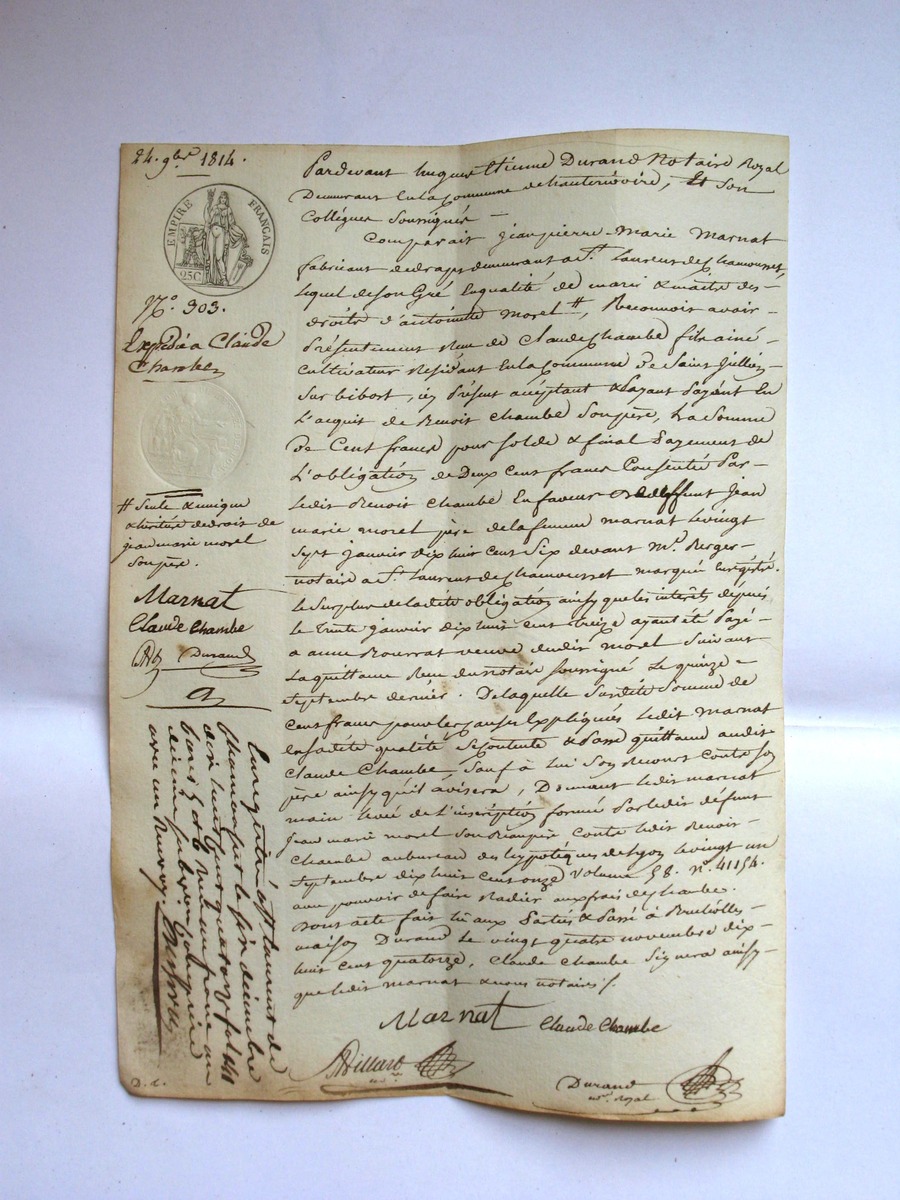 24. 9bre 1814.
EMPIRE FRANÇAIS
25C
N.o 303.
Expédié a Claude
Chambe
# Seule & unique
héritière de droit de
jean marie morel
Son père.
Marnat
Claude Chambe
Durand
Enregistré à St Laurent de
Chamousset le six décembre
mil huit cent quatorze fol. 141
Reçu
décime
Pardevant hugues Etienne Durand Notaire Royal
Demeurant En la Commune de hauterivoire, Et Son
Collégue Soussignés —
Comparait jean pierre-Marie Marnat
fabricant de draps demeurant a St. Laurent de Chamousset,
lequel de Son Gré En qualité de mari & maitre des-
droits d'antoinette morel #, Reconnoit avoir-
Présentement Reçu de Claude Chambe fils ainé-
Cultivateur Résidant En la Commune de Saint Jullien
Sur bibost, ici Présent acceptant & Payant En
L'acquit de Benoit Chambe Son père, La Somme
De Cent francs pour Solde & final Payement de
L'obligation de Deux Cent francs Consentie Par-
ledit Benoit Chambe En faveur de deffunt Jean
marie morel père de la femme marnat le vingt
Sept janvier dix huit Cent Six devant Me. Berger-
notaire a St. Laurent de Chamousset marqué Enregistré.
Le Surplus de ladite obligation ainsy que les intérêts depuis
le Trente janvier dix huit Cent treize ayant été Payé-
a anne Bourrat veuve dudit morel Suivant
La quittance Reçue du notaire Soussigné Le quinze-
Septembre dernier. De laquelle Susdite Somme de
Cent francs pour les Causes Expliquées ledit Marnat
En Sadite qualité Se Contente & Passe quittance audit
Claude Chambe, Sauf à lui Son Recours Contre Son
père ainsy qu'il avisera, Donnant ledit marnat
main levée de l'inscription formée Par ledit défunt
Jean marie morel Son Beaupère Contre ledit Benoit-
Chambe au bureau des hypotèques de Lyon le vingt un
Septembre dix huit Cent onze Volume 58. n.o 41154.
avec pouvoir de faire Radier aux frais de Chambe.
Dont acte fait lu aux Parties & Passé à Brullioles
maison Durand Le vingt quatre novembre dix-
huit Cent quatorze, Claude Chambe Signera ainsy-
que ledit Marnat & nous notaires /.
Marnat Claude Chambe
Billard
nre.
Durand
nre. Royal
D. L.